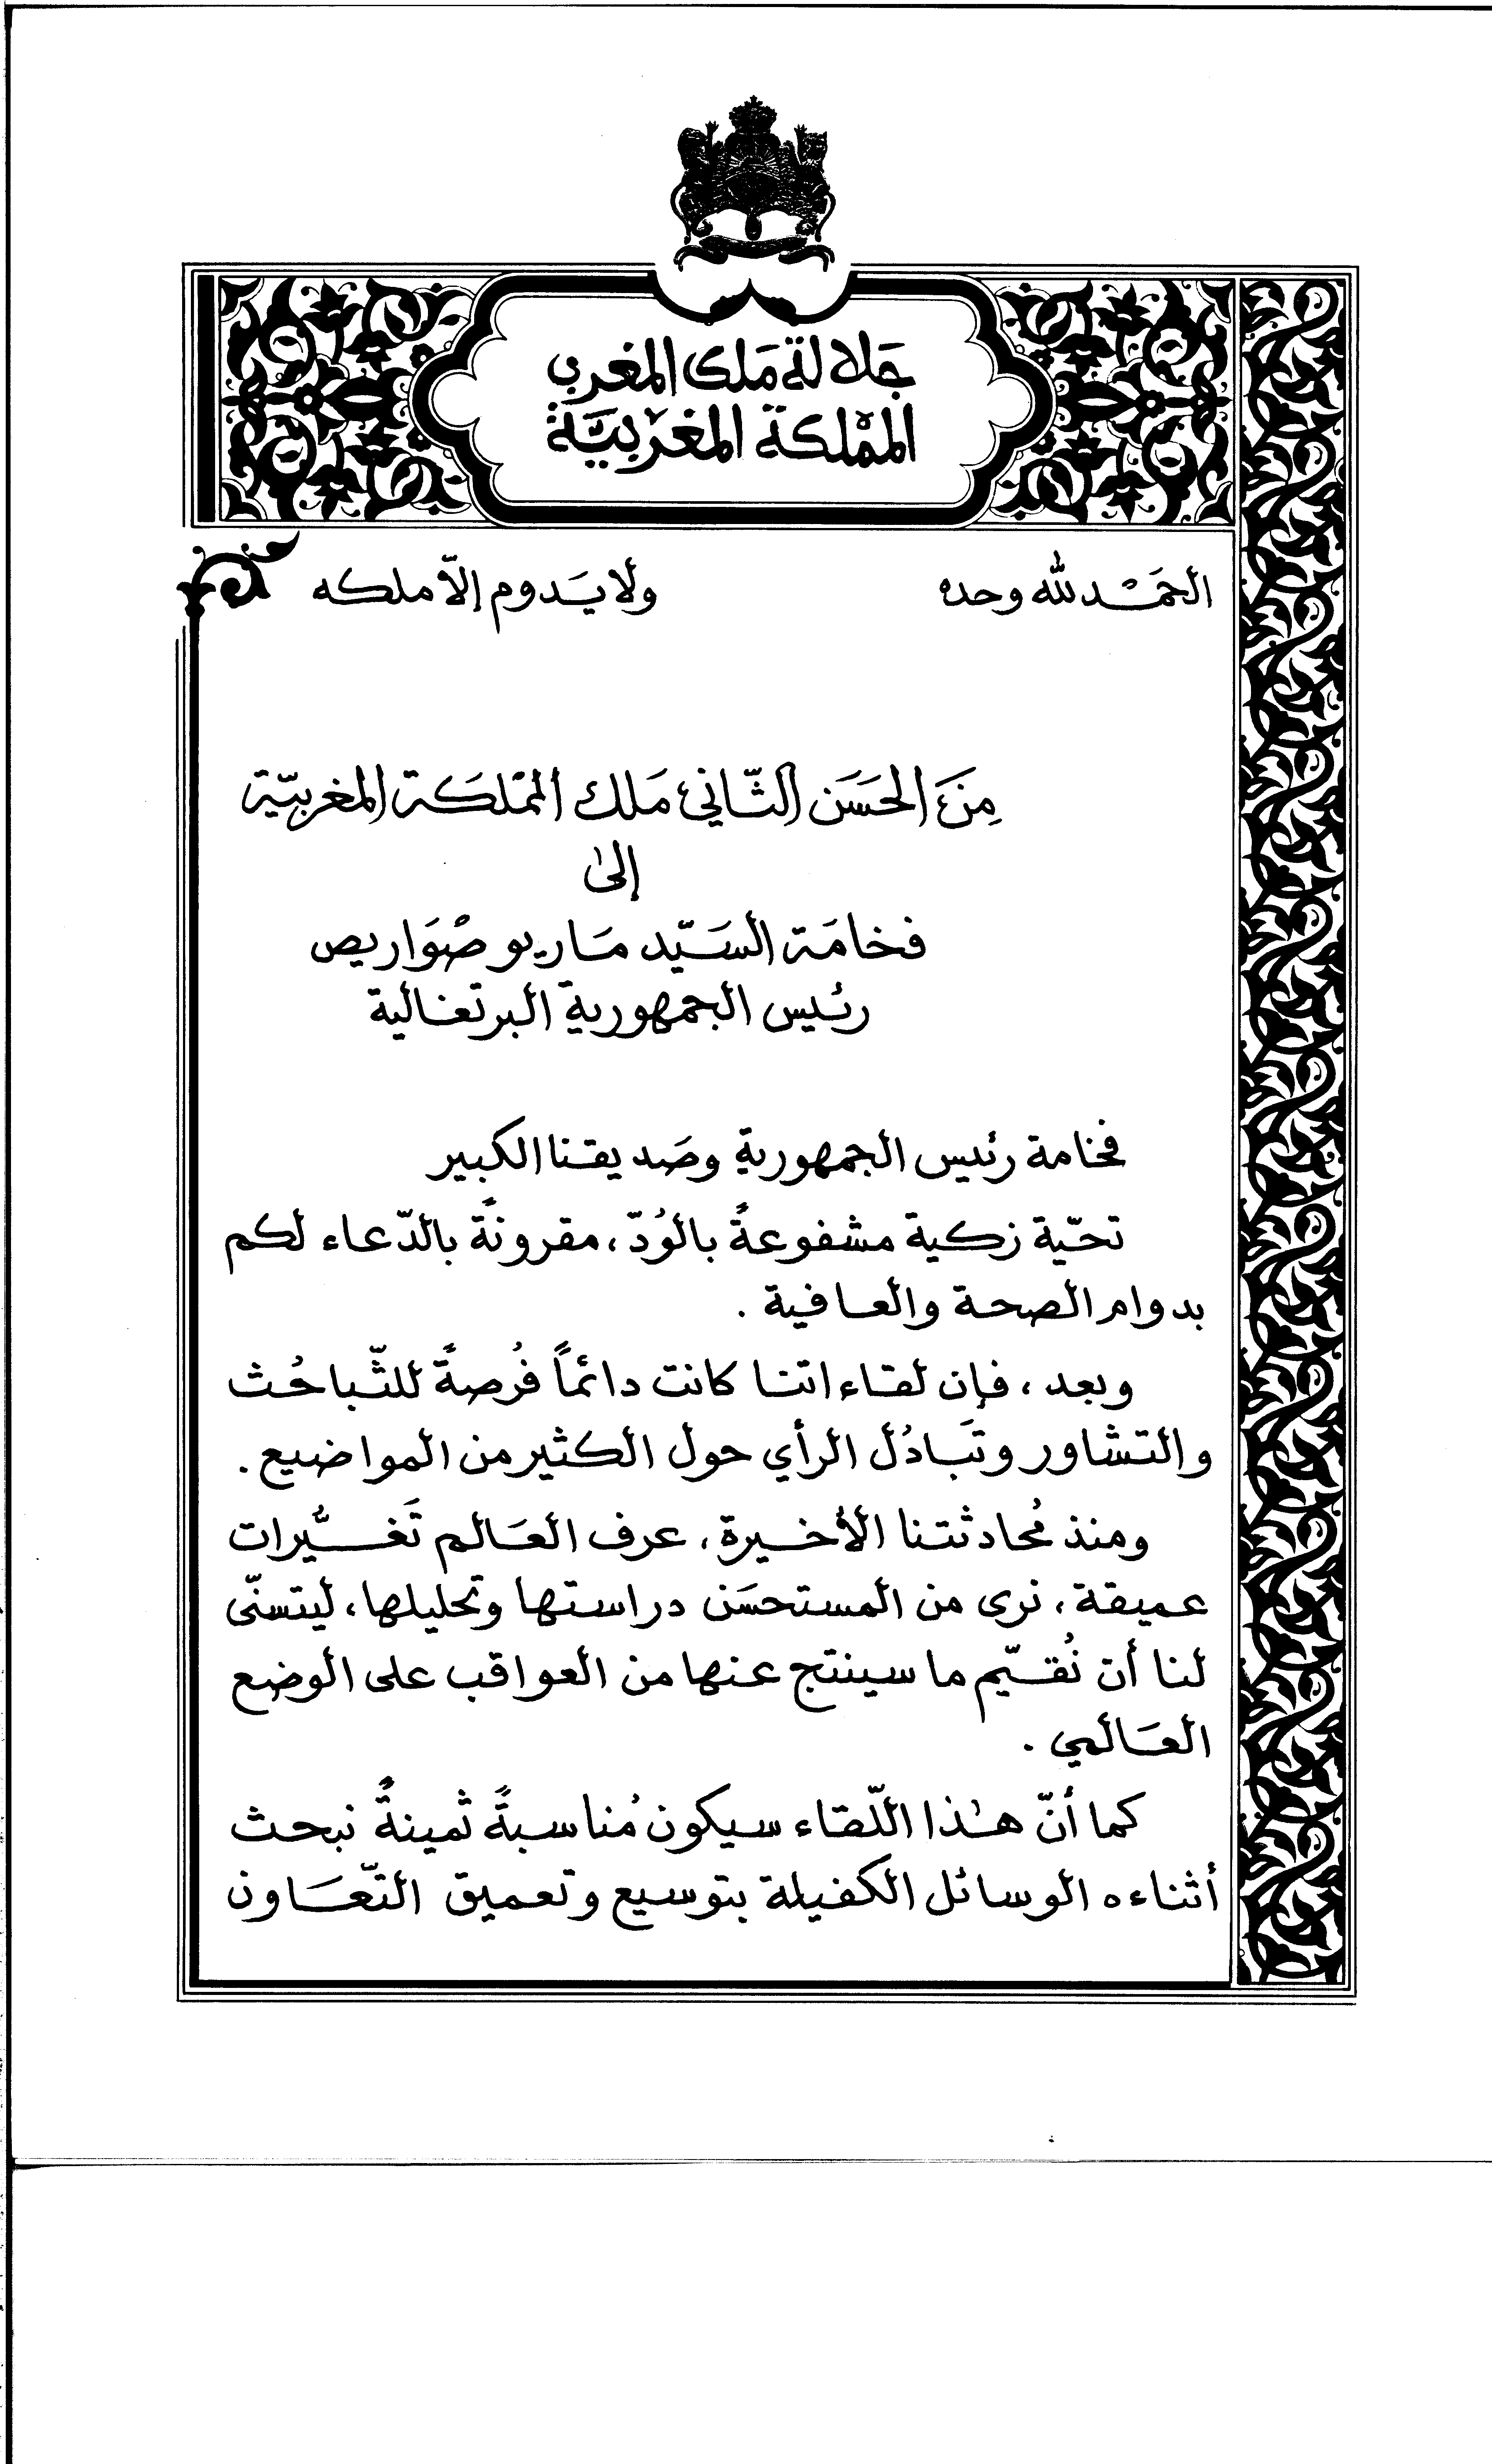 جلالة ملك المغرب
الممْلكة المغْربيَّة
الحمَْد لله وحده ولا يَدوم إلاّ ملكه
مِنَ الحَسَن الثّاني مَلك المَمْلَكَة المغربيّة
إلىٰ
فخامَة السَيّد مَاريو صْوَاريص
رئيس الجمهورية البرتغالية
فخامة رئيس الجمهورية وصَديقنا الكبير
تحيّة زكية مشفوعةً بالوُدّ، مقرونةً بالدّعاء لكم
بدوام الصحة والعافية .
وبعد، فإن لقاءاتنا كانت دائماً فُرصةً للتّباحُث
والتشاور وتَبادُل الرأي حول الكثير من المواضيع.
ومنذ مُحادثتنا الأخيرة، عرف العَالم تَغيُّرات
عميقة، نرى من المستحسَن دراستها وتحليلها، ليتسنّى
لنا أن نُقيّم ما سينتج عنها من العواقب على الوضع
العَالمي .
كما أنّ هٰذا اللّقاء سيكون مُناسبةً ثمينةً نبحث
أثناءه الوسائل الكفيلة بتوسيع وتعميق التّعَاون